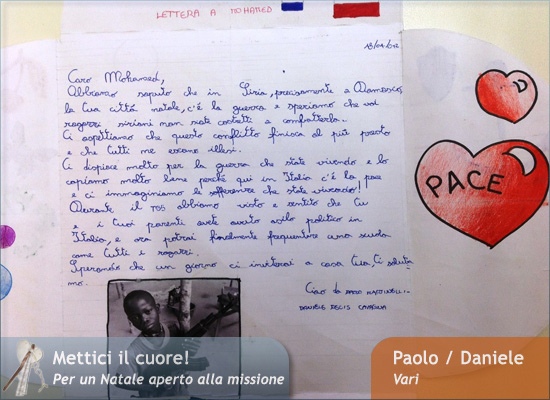 LETTERA A MOHAMED
18/04/012
Caro Mohamed,
Abbiamo saputo che in Siria, precisamente a Damasco,
la tua città natale, c'è la guerra e speriamo che voi
ragazzi siriani non siate costretti a combatterla..
Ci aspettiamo che questo conflitto finisca al più presto
e che tutti ne escano illesi.
Ci dispiace molto per la guerra che state vivendo e lo
capiamo molto bene perché qui in Italia c'è la pace
e ci immaginiamo le sofferenze che state vivendo!
Durante il TG5 abbiamo visto e sentito che tu
e i tuoi parenti avete avuto asilo politico in
Italia, e ora potrai finalmente frequentare una scuola
come tutti i ragazzi.
Sperando che un giorno ci inviterai a casa tua, ti saluta
mo.
Ciao da PAOLO
DANIELE
PACE
Mettici il cuore!
Per un Natale aperto alla missione
Paolo / Daniele
Vari